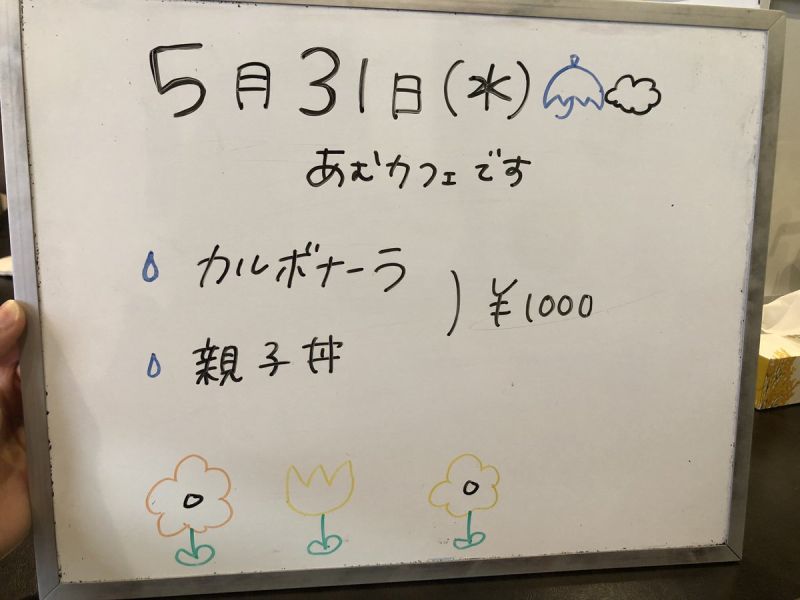 5月31日(水)
あむカフェです
カルボナーラ
親子丼
¥1000